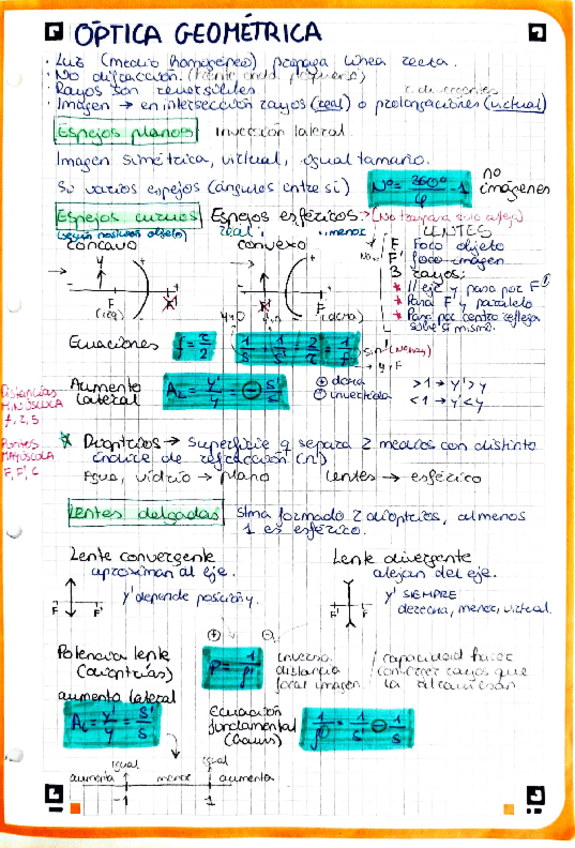 ÓPTICA GEOMÉTRICA
· Luz (medio homogéneo) propaga línea recta.
· No difracción. (frente ond. pequeño)
· Rayos son reversibles r. divergentes
· Imagen → en intersección rayos (real) o prolongaciones (virtual)
Espejos planos inversión lateral.
Imagen simétrica, virtual, igual tamaño.
Si varios espejos (ángulos entre sí) Nº = 360º/φ - 1 no imágenes
Espejos curvos Espejos esféricos → (No traspasa solo refleja)
(según posición objeto) real , menor
cóncavo convexo
LENTES
F Foco objeto
F' foco imagen
3 rayos:
* //eje y pasa por F'
* Pasa F y paralelo
* Pasa por centro refleja
sobre sí mismo.
F F
Ecuaciones f = r/2 1/s + 1/s' = 2/r = 1/f
Aumento
lateral AL = y'/y = ⊖ s'/s
⊕ dcha >1 → y'>y
⊖ invertida <1 → y'<y
Distancias
MINÚSCULA
f, r, s
Puntos
MAYÚSCULA
F, F', C
* Dioptrios → superficie q separa 2 medios con distinto
índice de refracción (n)
Agua, vidrio → plano lentes → esférico
Lentes delgadas sima formado 2 dioptrios, al menos
1 es esférico.
Lente convergente
aproximan al eje.
F F'
y' depende posición y.
Lente divergente
alejan del eje.
F' F
y' SIEMPRE
derecha, menor, virtual.
Potencia lente
(dioptrías)
⊕ ⊖
P = 1/f'
inverso
distancia
focal imagen.
capacidad hacer
converger rayos que
la atraviesan
aumento lateral
AL = y'/y = s'/s
Ecuación
fundamental
(Gauss)
1/f' = 1/s' ⊖ 1/s
igual igual
aumenta menor aumenta
-1 1